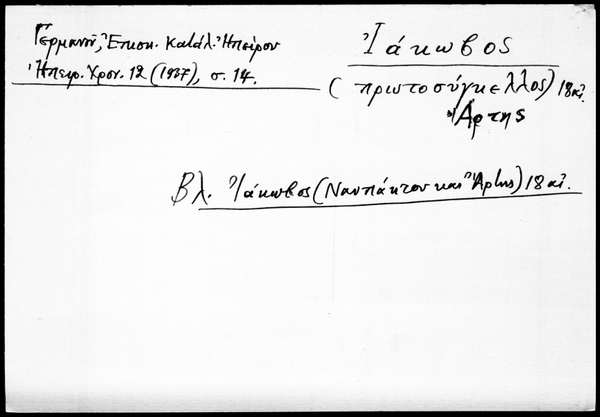 Γερμανοῦ, Ἐπισκ. Κατάλ. Ἠπείρου
Ἠπειρ. Χρον. 12 (1937), σ. 14.
Ἰάκωβος
(πρωτοσύγκελλος) 18 αἰ.
Ἄρτης
Βλ. Ἰάκωβος (Ναυπάκτου καὶ Ἄρτης) 18 αἰ.